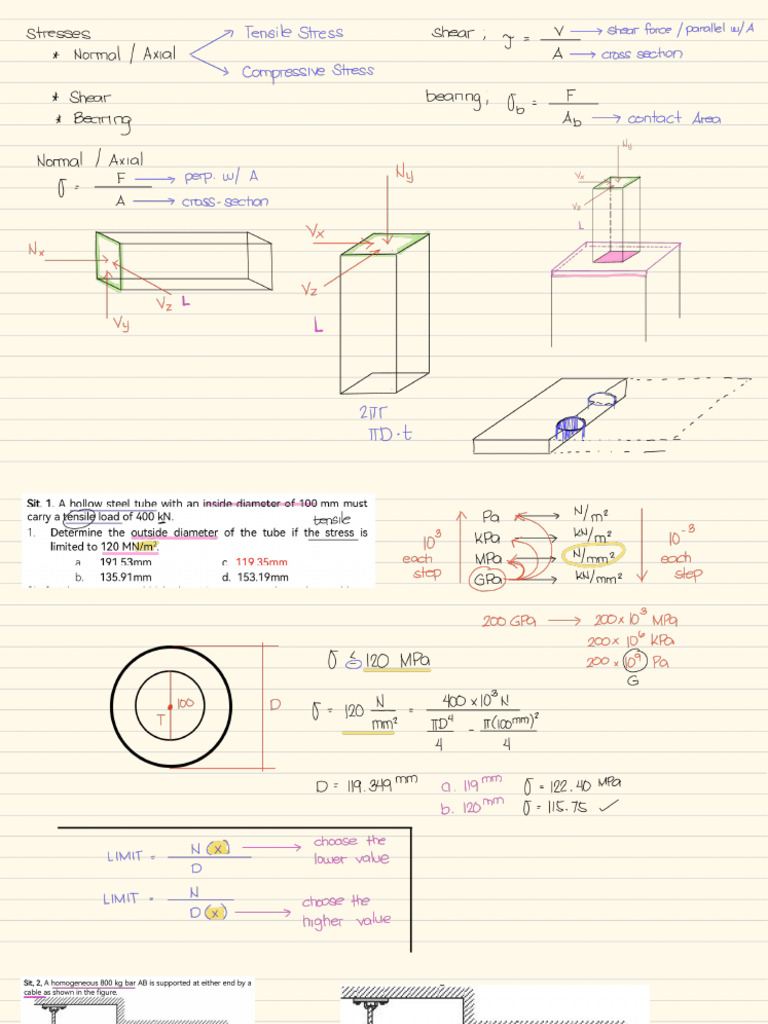 Stresses
* Normal / Axial
Tensile Stress
Compressive Stress
* Shear
* Bearing
Shear ; τ = V / A
shear force / parallel w/ A
cross section
bearing, σb = F / Ab
contact Area
Normal / Axial
σ = F / A
perp. w/ A
cross-section
Nx
Vz
L
Vy
Ny
Vx
Vz
L
Ny
Vx
Vz
L
2πr
πD·t
Sit. 1. A hollow steel tube with an inside diameter of 100 mm must
carry a tensile load of 400 kN.
tensile
1. Determine the outside diameter of the tube if the stress is
limited to 120 MN/m².
a. 191.53mm c. 119.35mm
b. 135.91mm d. 153.19mm
10³ each step
Pa → N/m²
kPa → kN/m²
MPa → N/mm²
GPa → kN/mm²
10⁻³ each step
200 GPa → 200 x 10³ MPa
200 x 10⁶ kPa
200 x 10⁹ Pa
G
100
T
D
σ ≤ 120 MPa
σ = 120 N/mm² = 400 x 10³ N / πD⁴/4 - π(100mm)²/4
D = 119.349 mm
a. 119 mm σ = 122.40 MPa
b. 120 mm σ = 115.75 ✓
LIMIT = N(x) / D
choose the
lower value
LIMIT = N / D(x)
choose the
higher value
Sit, 2, A homogeneous 800 kg bar AB is supported at either end by a
cable as shown in the figure.